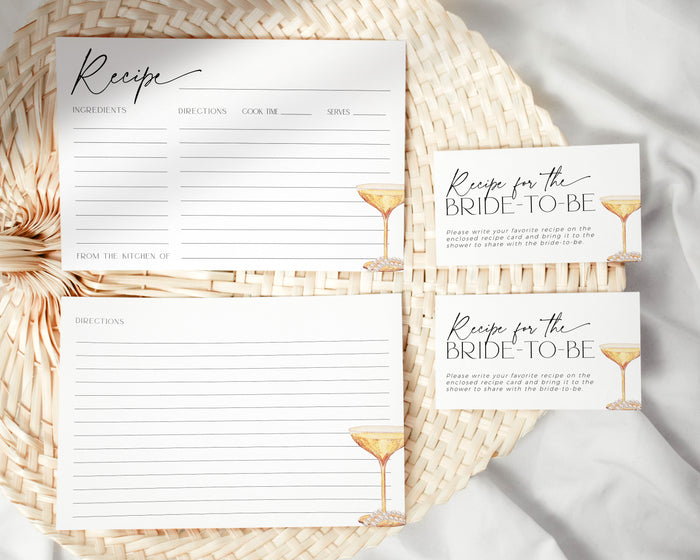 Recipe
INGREDIENTS
DIRECTIONS COOK TIME SERVES
FROM THE KITCHEN OF
Recipe for the
BRIDE-TO-BE
Please write your favorite recipe on the
enclosed recipe card and bring it to the
shower to share with the bride-to-be.
DIRECTIONS
Recipe for the
BRIDE-TO-BE
Please write your favorite recipe on the
enclosed recipe card and bring it to the
shower to share with the bride-to-be.